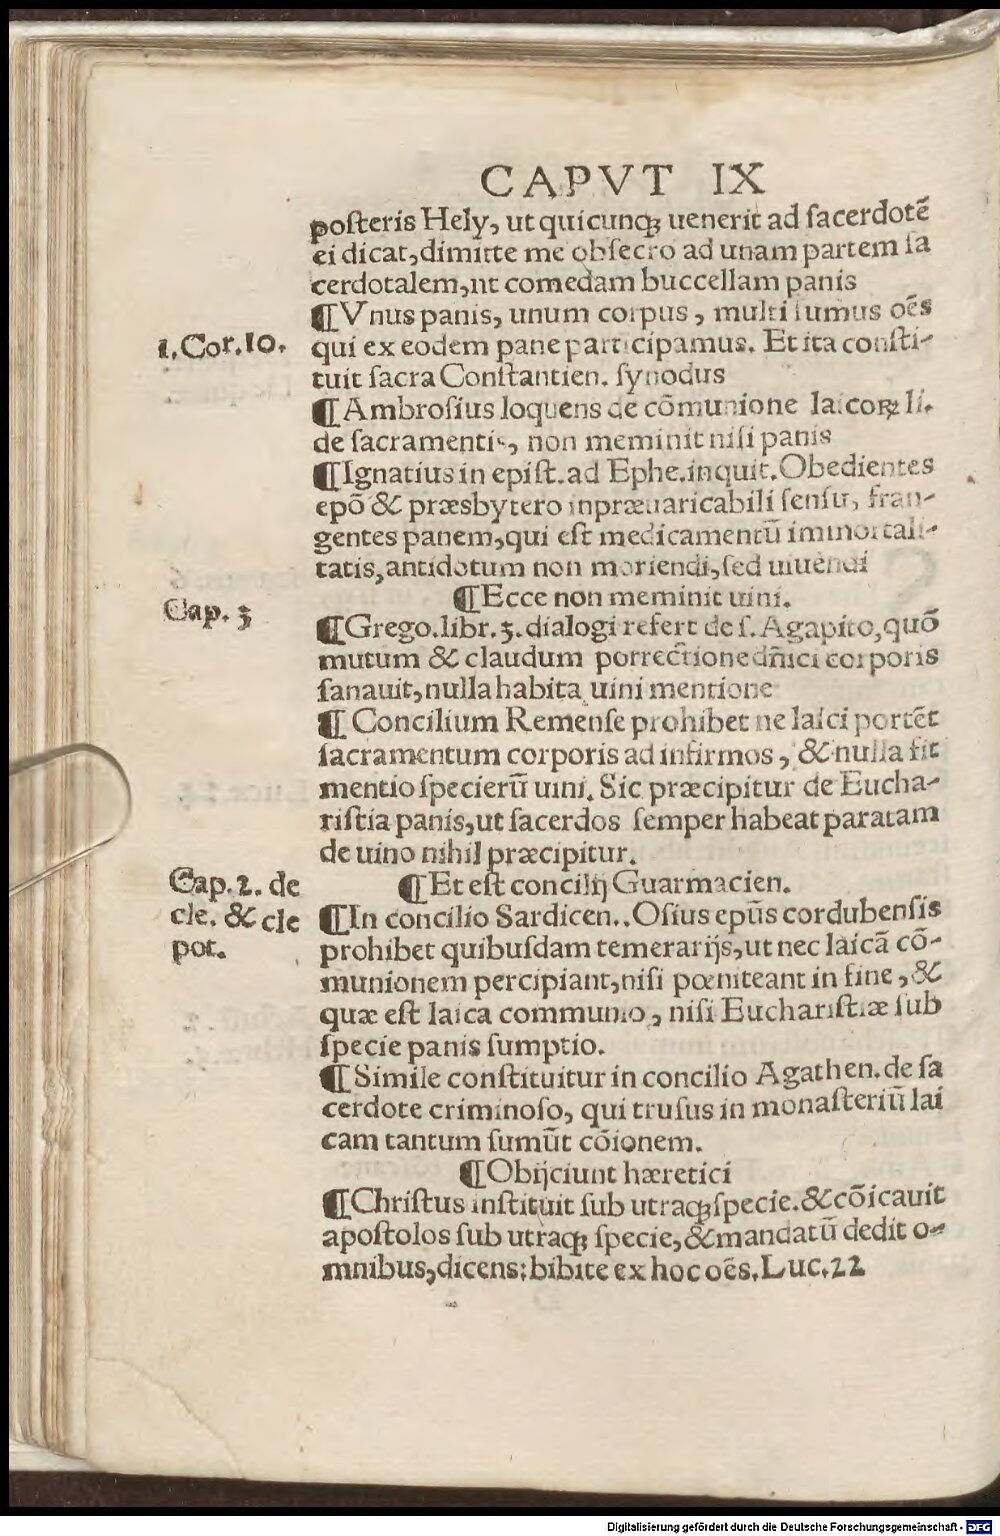 CAPVT IX
poſteris Hely, ut quicunqꝫ uenerit ad ſacerdotē
ei dicat, dimitte me obſecro ad unam partem ſa
cerdotalem, ut comedam buccellam panis
¶ Vnus panis, unum corpus, multi ſumus oēs
1. Cor. 10.
qui ex eodem pane participamus. Et ita conſti-
tuit ſacra Conſtantien. ſynodus
¶ Ambroſius loquens de cōmunione laicoꝝ li.
de ſacramentis, non meminit niſi panis
¶ Ignatius in epiſt. ad Ephe. inquit. Obedientes
epō & præsbytero inpræuaricabili ſenſu, fran-
gentes panem, qui eſt medicamentū immortali-
tatis, antidotum non moriendi, ſed uiuendi
¶ Ecce non meminit uini.
Cap. 3
¶ Grego. libr. 3. dialogi refert de ſ. Agapito, quō
mutum & claudum porrectione dn̄ici corporis
ſanauit, nulla habita uini mentione
¶ Concilium Remenſe prohibet ne laici portēt
ſacramentum corporis ad infirmos, & nulla fit
mentio ſpecierū uini. Sic præcipitur de Eucha-
riſtia panis, ut ſacerdos ſemper habeat paratam
de uino nihil præcipitur.
Cap. 2. de
cle. & cle
pot.
¶ Et eſt concilij Guarmacien.
¶ In concilio Sardicen.. Oſius epūs cordubenſis
prohibet quibuſdam temerarijs, ut nec laicā cō-
munionem percipiant, niſi pœniteant in fine, &
quæ eſt laica communio, niſi Euchariſtiæ ſub
ſpecie panis ſumptio.
¶ Simile conſtituitur in concilio Agathen. de ſa
cerdote criminoſo, qui truſus in monaſteriū lai
cam tantum ſumūt cōionem.
¶ Obijciunt hæretici
¶ Chriſtus inſtituit ſub utraqꝫ ſpecie. & cōicauit
apoſtolos ſub utraqꝫ ſpecie, & mandatū dedit o-
mnibus, dicens: bibite ex hoc oēs. Luc. 22
Digitalisierung gefördert durch die Deutsche Forschungsgemeinschaft - DFG